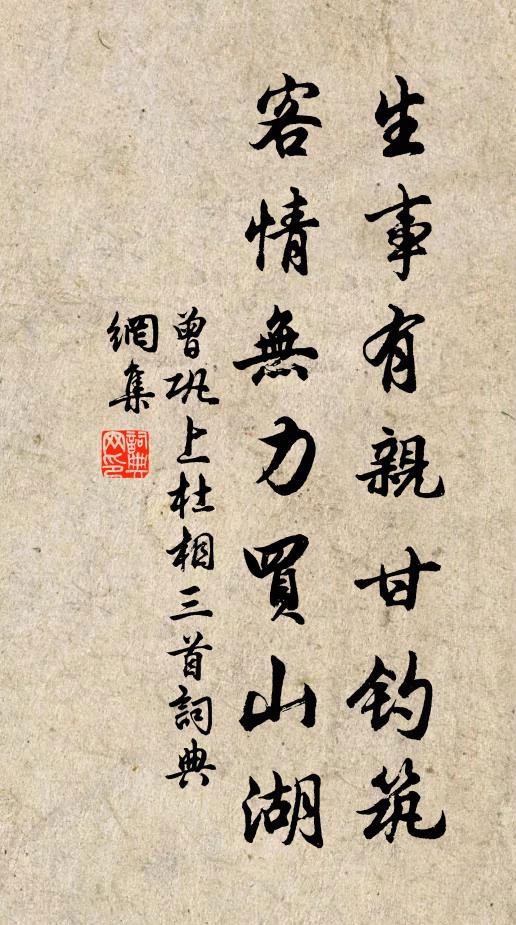 生事有親甘钓筑
客情無力買山湖
曾巩上杜相三首詞典
網集
詞典
网印